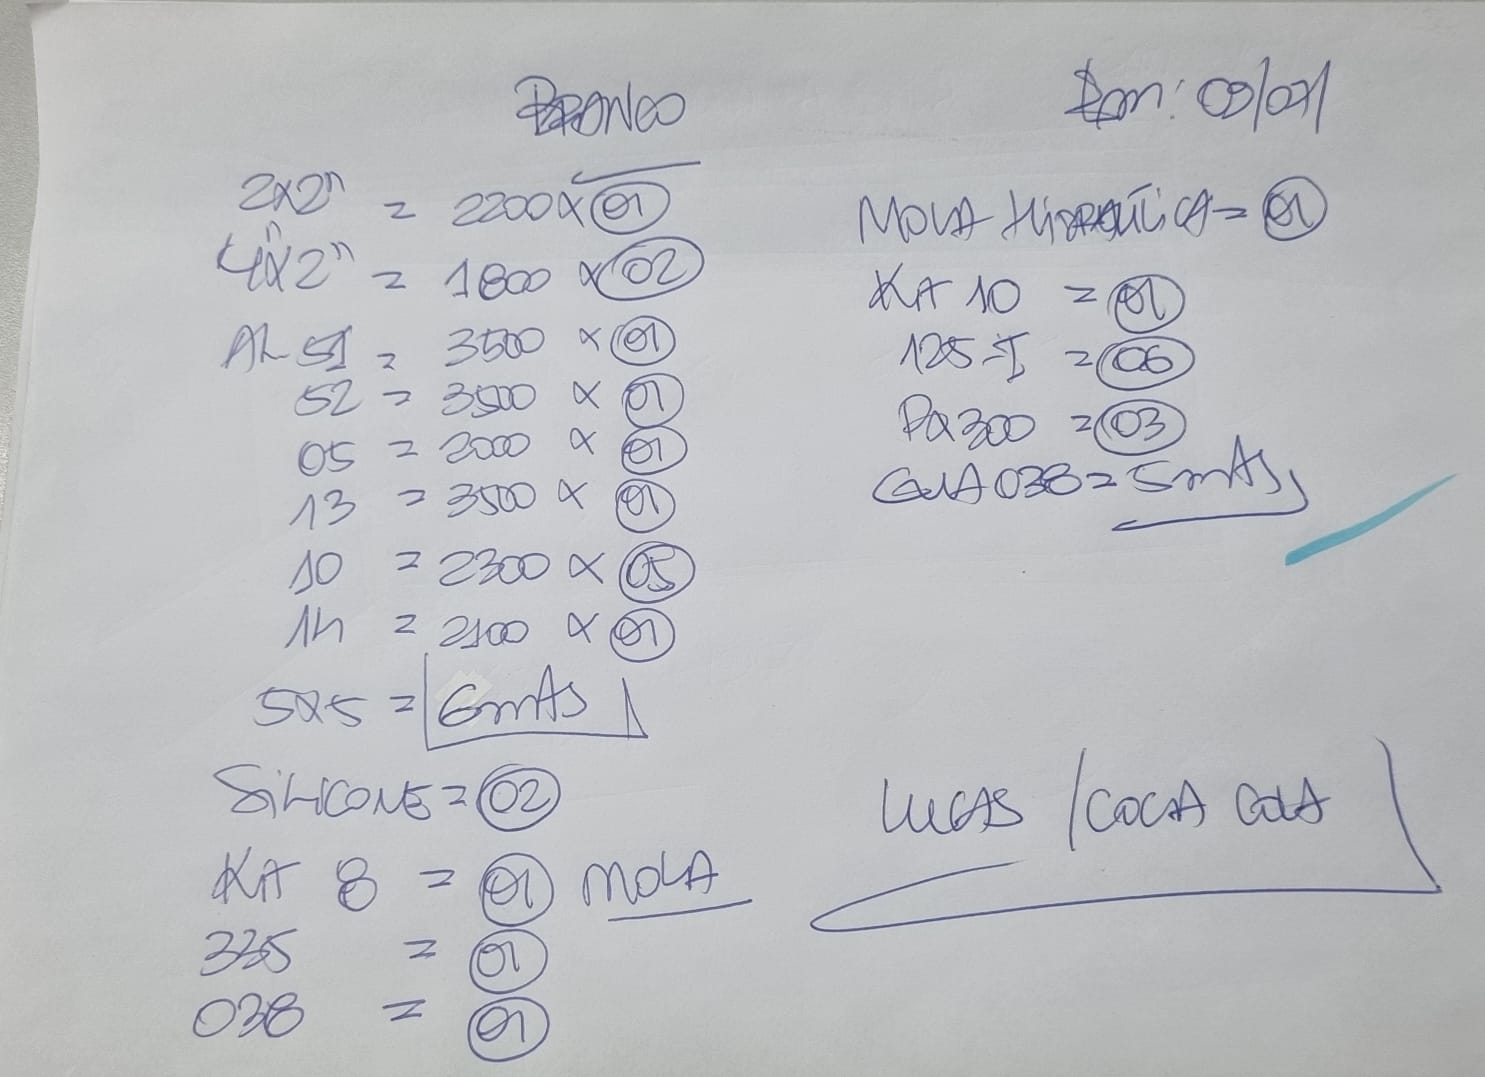 BRANCO
2x2" = 2200 x 01
4"x2" = 1800 x 02
AL 51 = 3500 x 01
52 = 3500 x 01
05 = 2000 x 01
13 = 3500 x 01
10 = 2300 x 05
14 = 2100 x 01
5x5 = 6mts
SILICONE = 02
Kit 8 = 01 MOLA
335 = 01
038 = 01
Rom: 09/07
MOLA HiDRAÚLiCA = 01
Kit 10 = 01
125-I = 06
PA300 = 03
GUA038 = 5mts
LUCAS / COCA COLA